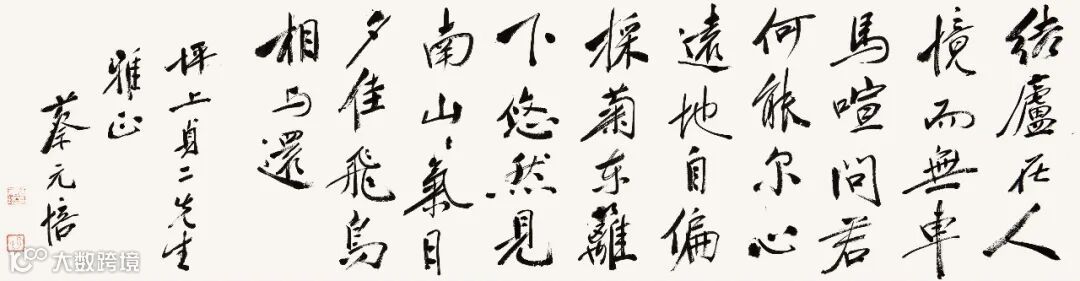 結廬在人
境而無車
馬喧問君
何能尔心
遠地自偏
採菊东籬
下悠然見
南山〻氣日
夕佳飛鳥
相与還
坪上貞二先生
雅正
蔡元培
大数跨境